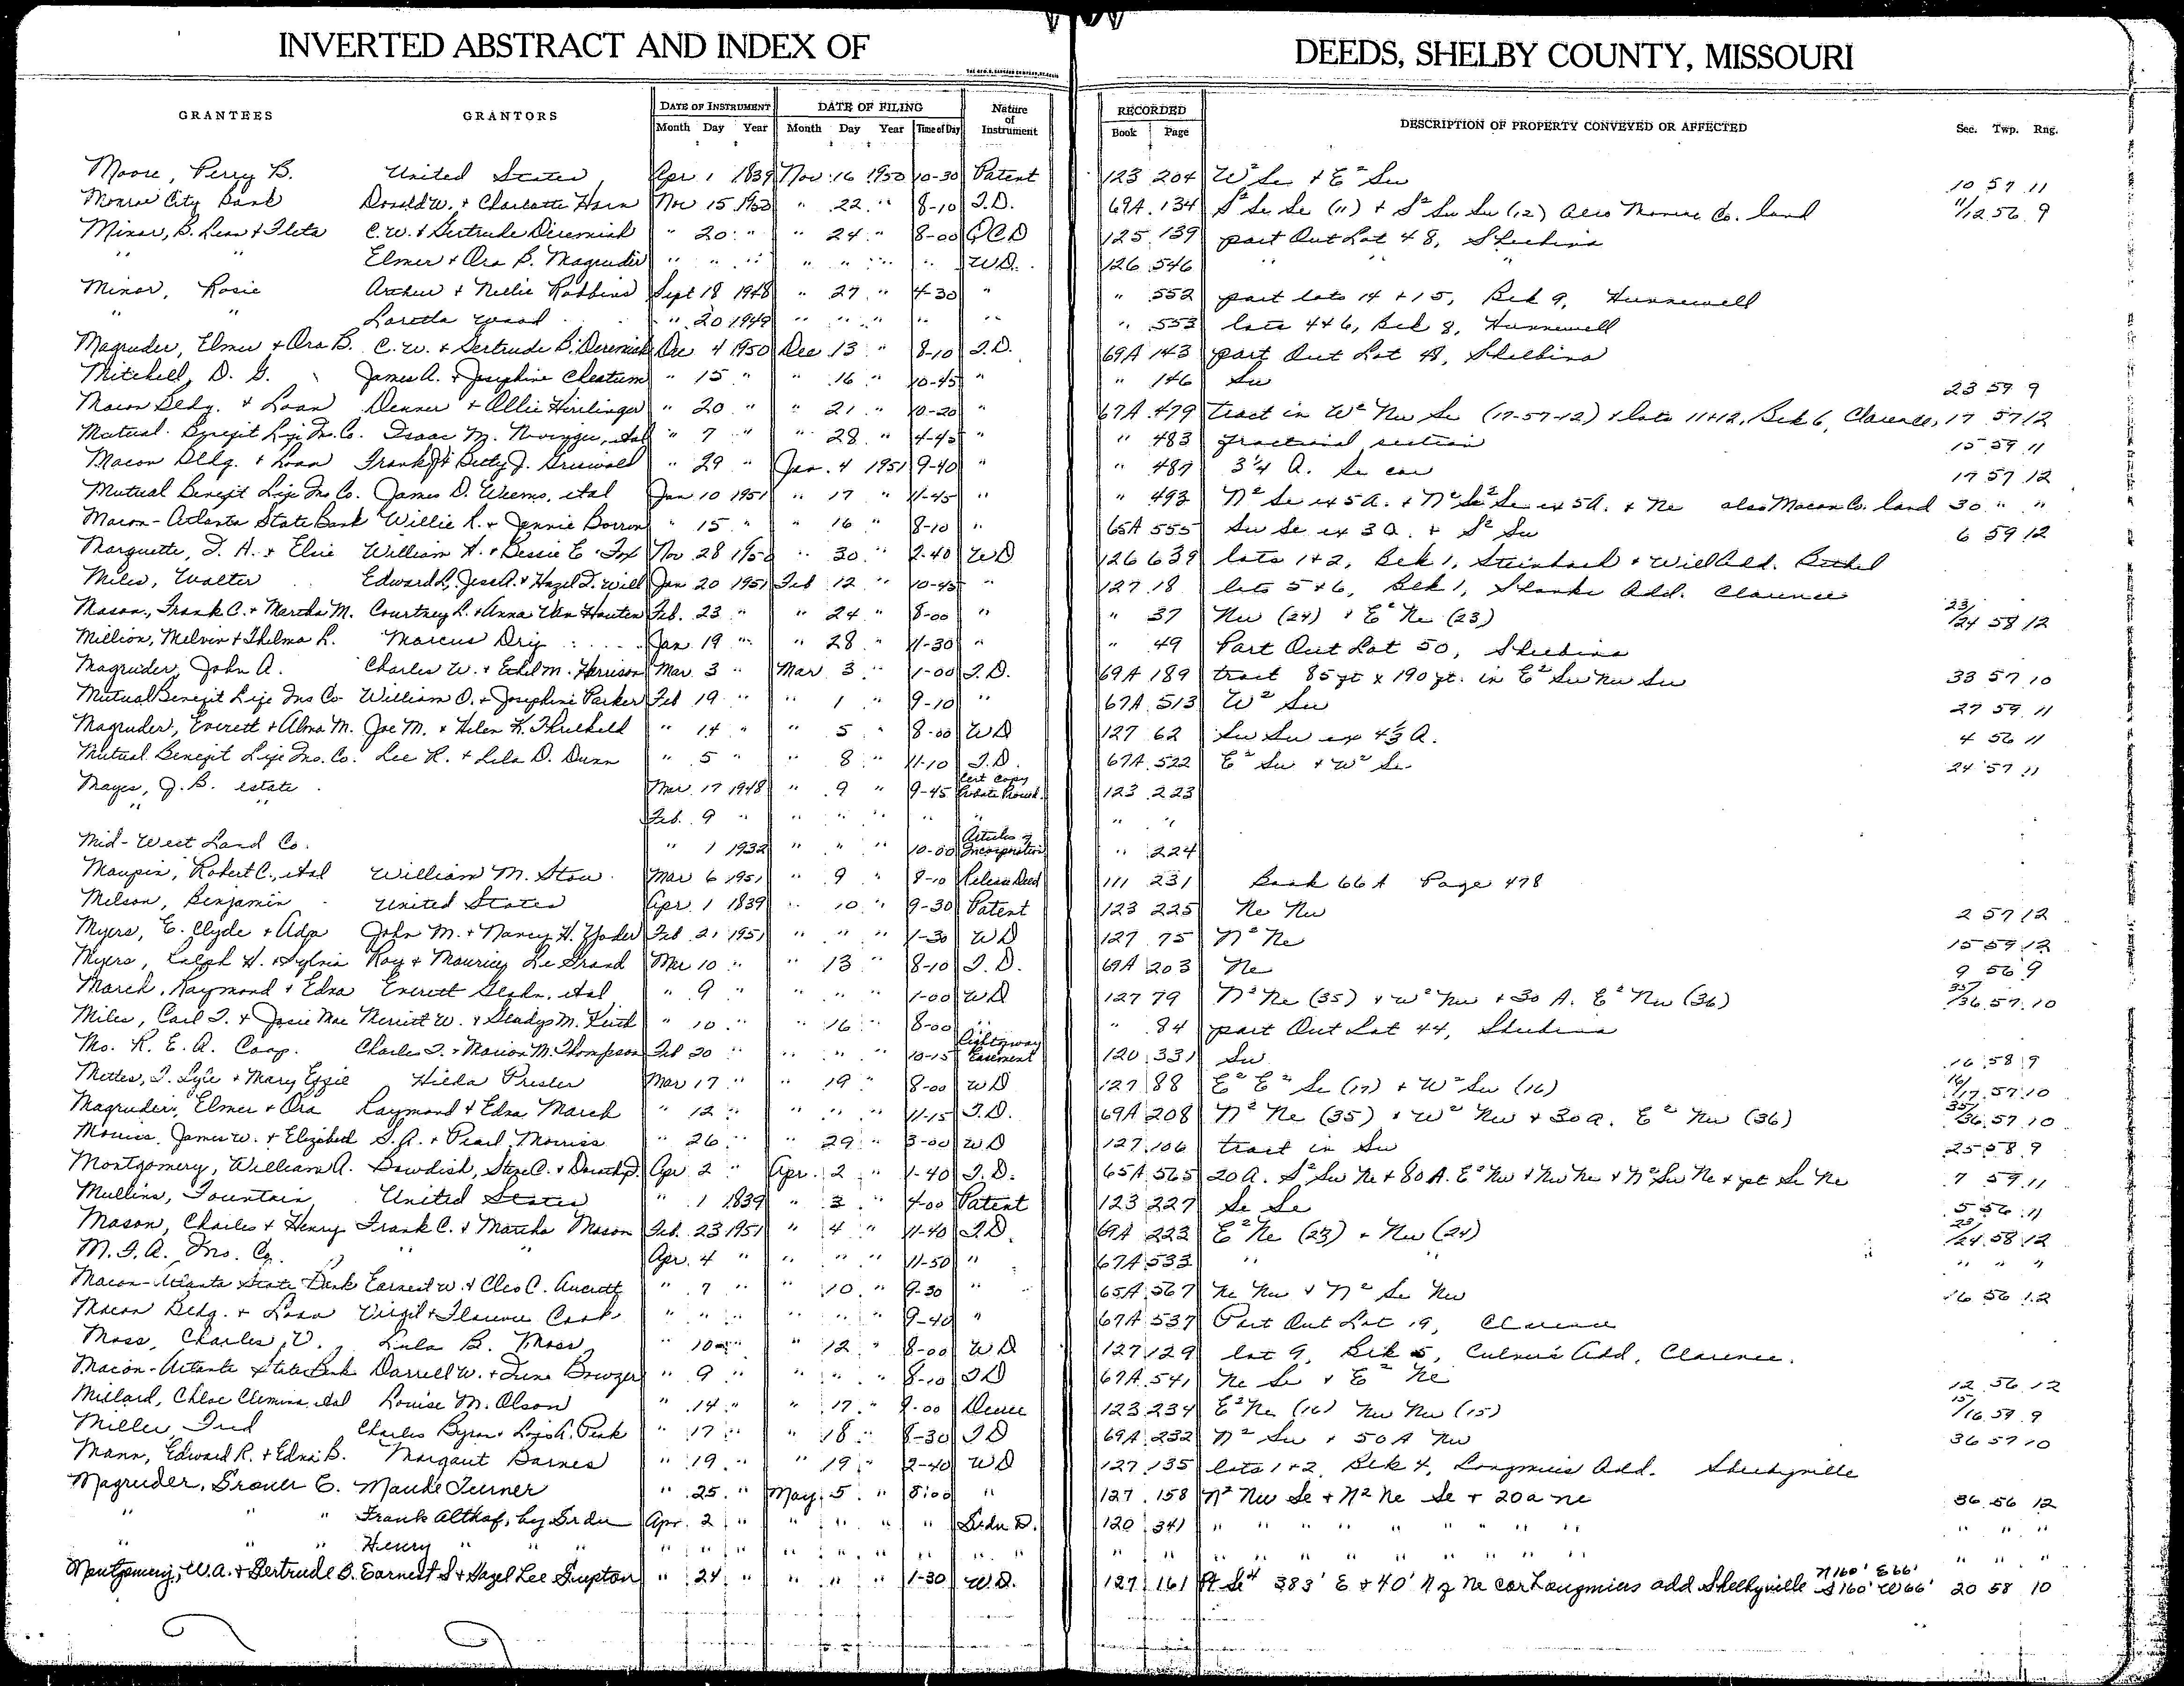 INVERTED ABSTRACT AND INDEX OF DEEDS, SHELBY COUNTY, MISSOURI
GRANTEES GRANTORS DATE OF INSTRUMENT DATE OF FILING Nature of Instrument RECORDED DESCRIPTION OF PROPERTY CONVEYED OR AFFECTED Sec. Twp. Rng.
Month Day Year Month Day Year Time of Day Book Page
Moore, Perry B. United States Apr 1 1839 Nov 16 1950 10-30 Patent 123 204 W² Se + E² Sw 10 57 11
Monroe City Bank Donald W. + Charlotte Horn Nov 15 1950 " 22 " 8-10 T.D. 69A 134 S² Se Se (11) + S² Sw Sw (12) also Monroe Co. land 11/12 56 9
Minor, B. Leon + Fleta C. W. + Gertrude Diremiah " 20 " " 24 " 8-00 QCD 125 139 part Out Lot 48, Shelbina
" " Elmer + Ora B. Magruder " " " " " " " WD. 126 546 " " "
Minor, Rosie Archie + Nellie Robbins Sept 18 1948 " 27 " 4-30 " " 552 part lots 14 + 15, Blk 9, Hunnewell
" " Loretta Wood " 20 1949 " " " " " " 553 lots 4+6, Blk 8, Hunnewell
Magruder, Elmer + Ora B. C. W. + Gertrude B. Deremiah Dec 4 1950 Dec 13 " 8-10 T.D. 69A 143 part Out Lot 48, Shelbina
Mitchell, D. G. James A. + Josephine Cheatum " 15 " " 16 " 10-45 " " 146 Sw 23 59 9
Macon Bldg. + Loan Denner + Ollie Hirrlinger " 20 " " 21 " 10-20 " 67A 479 tract in W² Nw Se (17-57-12) + lots 11+12, Blk 6, Clarence, 17 57 12
Mutual Benefit Life Ins. Co. Isaac M. Novinger, etal " 7 " " 28 " 4-45 " " 483 fractional section 15 59 11
Macon Bldg. + Loan Frank J + Betty J. Griswold " 29 " Jan. 4 1951 9-40 " " 487 3¼ A. Se cor 17 57 12
Mutual Benefit Life Ins Co. James D. Weems, etal Jan 10 1951 " 17 " 11-45 " " 493 N² Se ex 5A. + N² Se² Se ex 5A. + Ne also Macon Co. land 30 " "
Macon-Atlanta State Bank Willie R. + Jennie Borron " 15 " " 16 " 8-10 " 65A 555 Sw Se ex 3A. + S² Sw 6 59 12
Marquette, T. H. + Elsie William H. + Bessie E. Fox Nov 28 1950 " 30 " 2-40 WD 126 639 lots 1+2, Blk 1, Steinbach + Will Add. Bethel
Miles, Walter Edward L, Jess A. + Hazel T. Will Jan 20 1951 Feb 12 " 10-45 " 127 18 lots 5+6, Blk 1, Shanks Add. Clarence
Mason, Frank C. + Martha M. Courtney L. + Anna Van Houten Feb. 23 " " 24 " 8-00 " " 37 Nw (24) + E² Ne (23) 23/24 58 12
Million, Melvin + Thelma L. Marcus Drig Jan 19 " " 28 " 11-30 " " 49 Part Out Lot 50, Shelbina
Magruder, John A. Charles W. + Ethel M. Harrison Mar 3 " Mar 3 " 1-00 T.D. 69A 189 tract 85 ft x 190 ft. in E² Sw Nw Sw 33 57 10
Mutual Benefit Life Ins Co William O. + Josephine Parker Feb 19 " " 1 " 9-10 " 67A 513 W² Sw 27 59 11
Magruder, Everett + Alma M. Joe M. + Helen K. Threlkeld " 14 " " 5 " 8-00 WD 127 62 Sw Sw ex 4⅓ A. 4 56 11
Mutual Benefit Life Ins. Co. Lee R. + Lela D. Dunn " 5 " " 8 " 11-10 T.D. 67A 522 E² Sw + W² Se 24 57 11
Mayes, J. B. estate Mar. 17 1948 " 9 " 9-45 Cert Copy Probate Proceed. 123 223
" " Feb. 9 " " " " " " " "
Mid-West Land Co. " 1 1932 " " " 10-00 Articles of Incorporation " 224
Maupin, Robert C., etal William M. Stow Mar 6 1951 " 9 " 8-10 Release Deed 111 231 Book 66A Page 478
Melson, Benjamin United States Apr. 1 1839 " 10 " 9-30 Patent 123 225 Ne Nw 2 57 12
Myers, E. Clyde + Ada John M. + Nancy H. Yoder Feb 21 1951 " " " 1-30 WD 127 75 N² Ne 15 59 12
Myers, Ralph H. + Sylvia Roy + Maurice Le Grand Mar 10 " " 13 " 8-10 T.D. 69A 203 Ne 9 56 9
March, Raymond + Edna Everett, etal " 9 " " " " 1-00 WD 127 79 N² Ne (35) + W² Nw + 30 A. E² Nw (36) 35/36 57 10
Miles, Carl T. + Josie Mae Merritt W. + Gladys M. Keith " 10 " " 16 " 8-00 " " 84 part Out Lot 44, Shelbina
Mo. R. E. A. Corp. Charles T. + Marion M. Thompson Feb 20 " " " " 10-15 Rightofway Easement 120 331 Sw 16 58 9
Mettes, T. Lyle + Mary Effie Hilda Presler Mar 17 " " 19 " 8-00 WD 127 88 E² E² Se (17) + W² Sw (16) 16/17 57 10
Magruder, Elmer + Ora Raymond + Edna March " 12 " " " " 11-15 T.D. 69A 208 N² Ne (35) + W² Nw + 30a. E² Nw (36) 35/36 57 10
Morriss, James W. + Elizabeth S. A. + Pearl Morriss " 26 " " 29 " 3-00 WD 127 106 tract in Sw 25 58 9
Montgomery, William A. Bowdish, Steve C. + Dorothy J. Apr 2 " Apr. 2 " 1-40 T.D. 65A 565 20A. S² Sw Ne + 80A. E² Nw + Nw Ne + N² Sw Ne + pt Se Ne 7 59 11
Mullins, Fountain United States " 1 1839 " 3 " 4-00 Patent 123 227 Se Se 5 56 11
Mason, Charles + Henry Frank C. + Martha Mason Feb. 23 1951 " 4 " 11-40 T.D. 69A 223 E² Ne (23) + Nw (24) 23/24 58 12
M. F. A. Ins. Co. " " Apr. 4 " " " " 11-50 " 67A 533 " " " " "
Macon-Atlanta State Bank Earnest W. + Cleo C. Averett " 7 " " 10 " 9-30 " 65A 567 Ne Nw + N² Se Nw 16 56 12
Macon Bldg. + Loan Virgil + Florence Cook " " " " " " 9-40 " 67A 537 Part Out Lot 19, Clarence
Moss, Charles V. Lula B. Moss " 10 " " 12 " 8-00 WD 127 129 lot 9, Blk 5, Culver's Add, Clarence.
Macon-Atlanta State Bank Darrell W. + June Bowzer " 9 " " " " 8-10 TD 67A 541 Ne Se + E² Ne 12 56 12
Millard, Chloe Clemina, etal Louise M. Olson " 14 " " 17 " 9-00 Decree 123 234 E² Ne (16) Nw Nw (15) 15/16 59 9
Miller, Fred Charles Byron + Lois A. Peak " 17 " " 18 " 8-30 TD 69A 232 N² Sw + 50A Nw 36 57 10
Mann, Edward R. + Edna B. Margaret Barnes " 19 " " 19 " 2-40 WD 127 135 lots 1+2, Blk 4, Longmires Add. Shelbyville
Magruder, Grover C. Maude Turner " 25 " May 5 " 8:00 " 127 158 N² Nw Se + N² Ne Se + 20a ne 36 56 12
" " " Frank Althof, by Grdn Apr. 2 " " " " " Grdn D. 120 341 " " " " " " " " " " "
" " " Henry " " " " " " " " " " " " " " " " " " " " " " " " "
Montgomery, W.A. + Gertrude B. Earnest S + Hazel Lee Gupton " 24 " " " " 1-30 W.D. 127 161 Pt Se⁴ 383' E + 40' N of Ne cor Longmires add Shelbyville N160' E66' S160' W66' 20 58 10